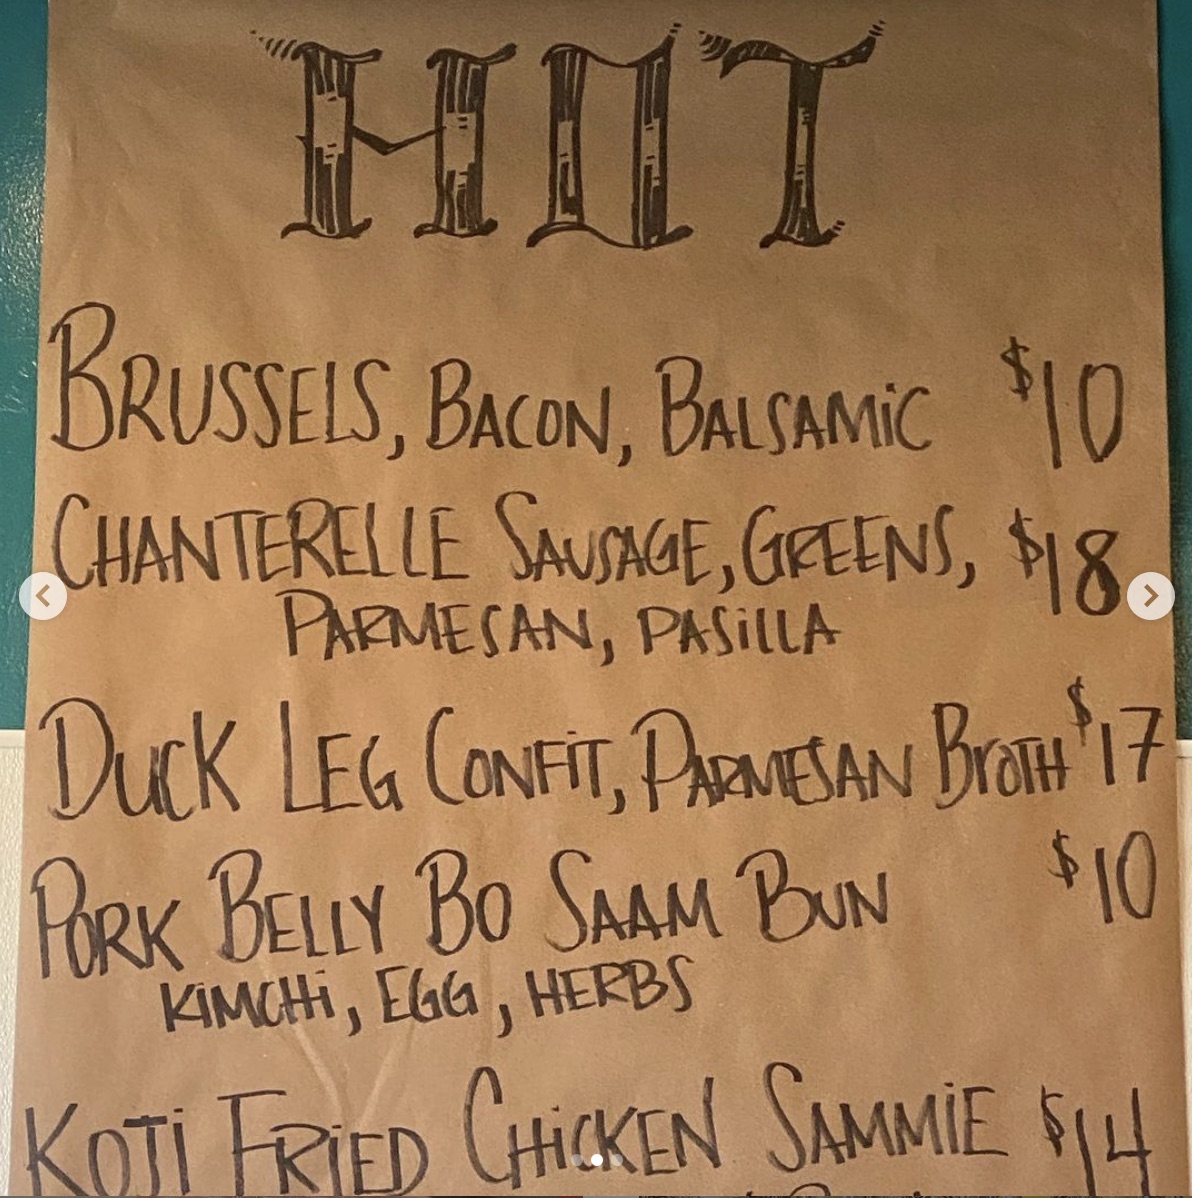 HOT
BRUSSELS, BACON, BALSAMiC $10
CHANTERELLE SAUSAGE, GREENS, $18
PARMESAN, PASiLLA
DUCK LEG CONFiT, PARMESAN BROTH $17
PORK BELLY BO SAAM BUN $10
KiMCHi, EGG, HERBS
KOJi FRiED CHiCKEN SAMMiE $14